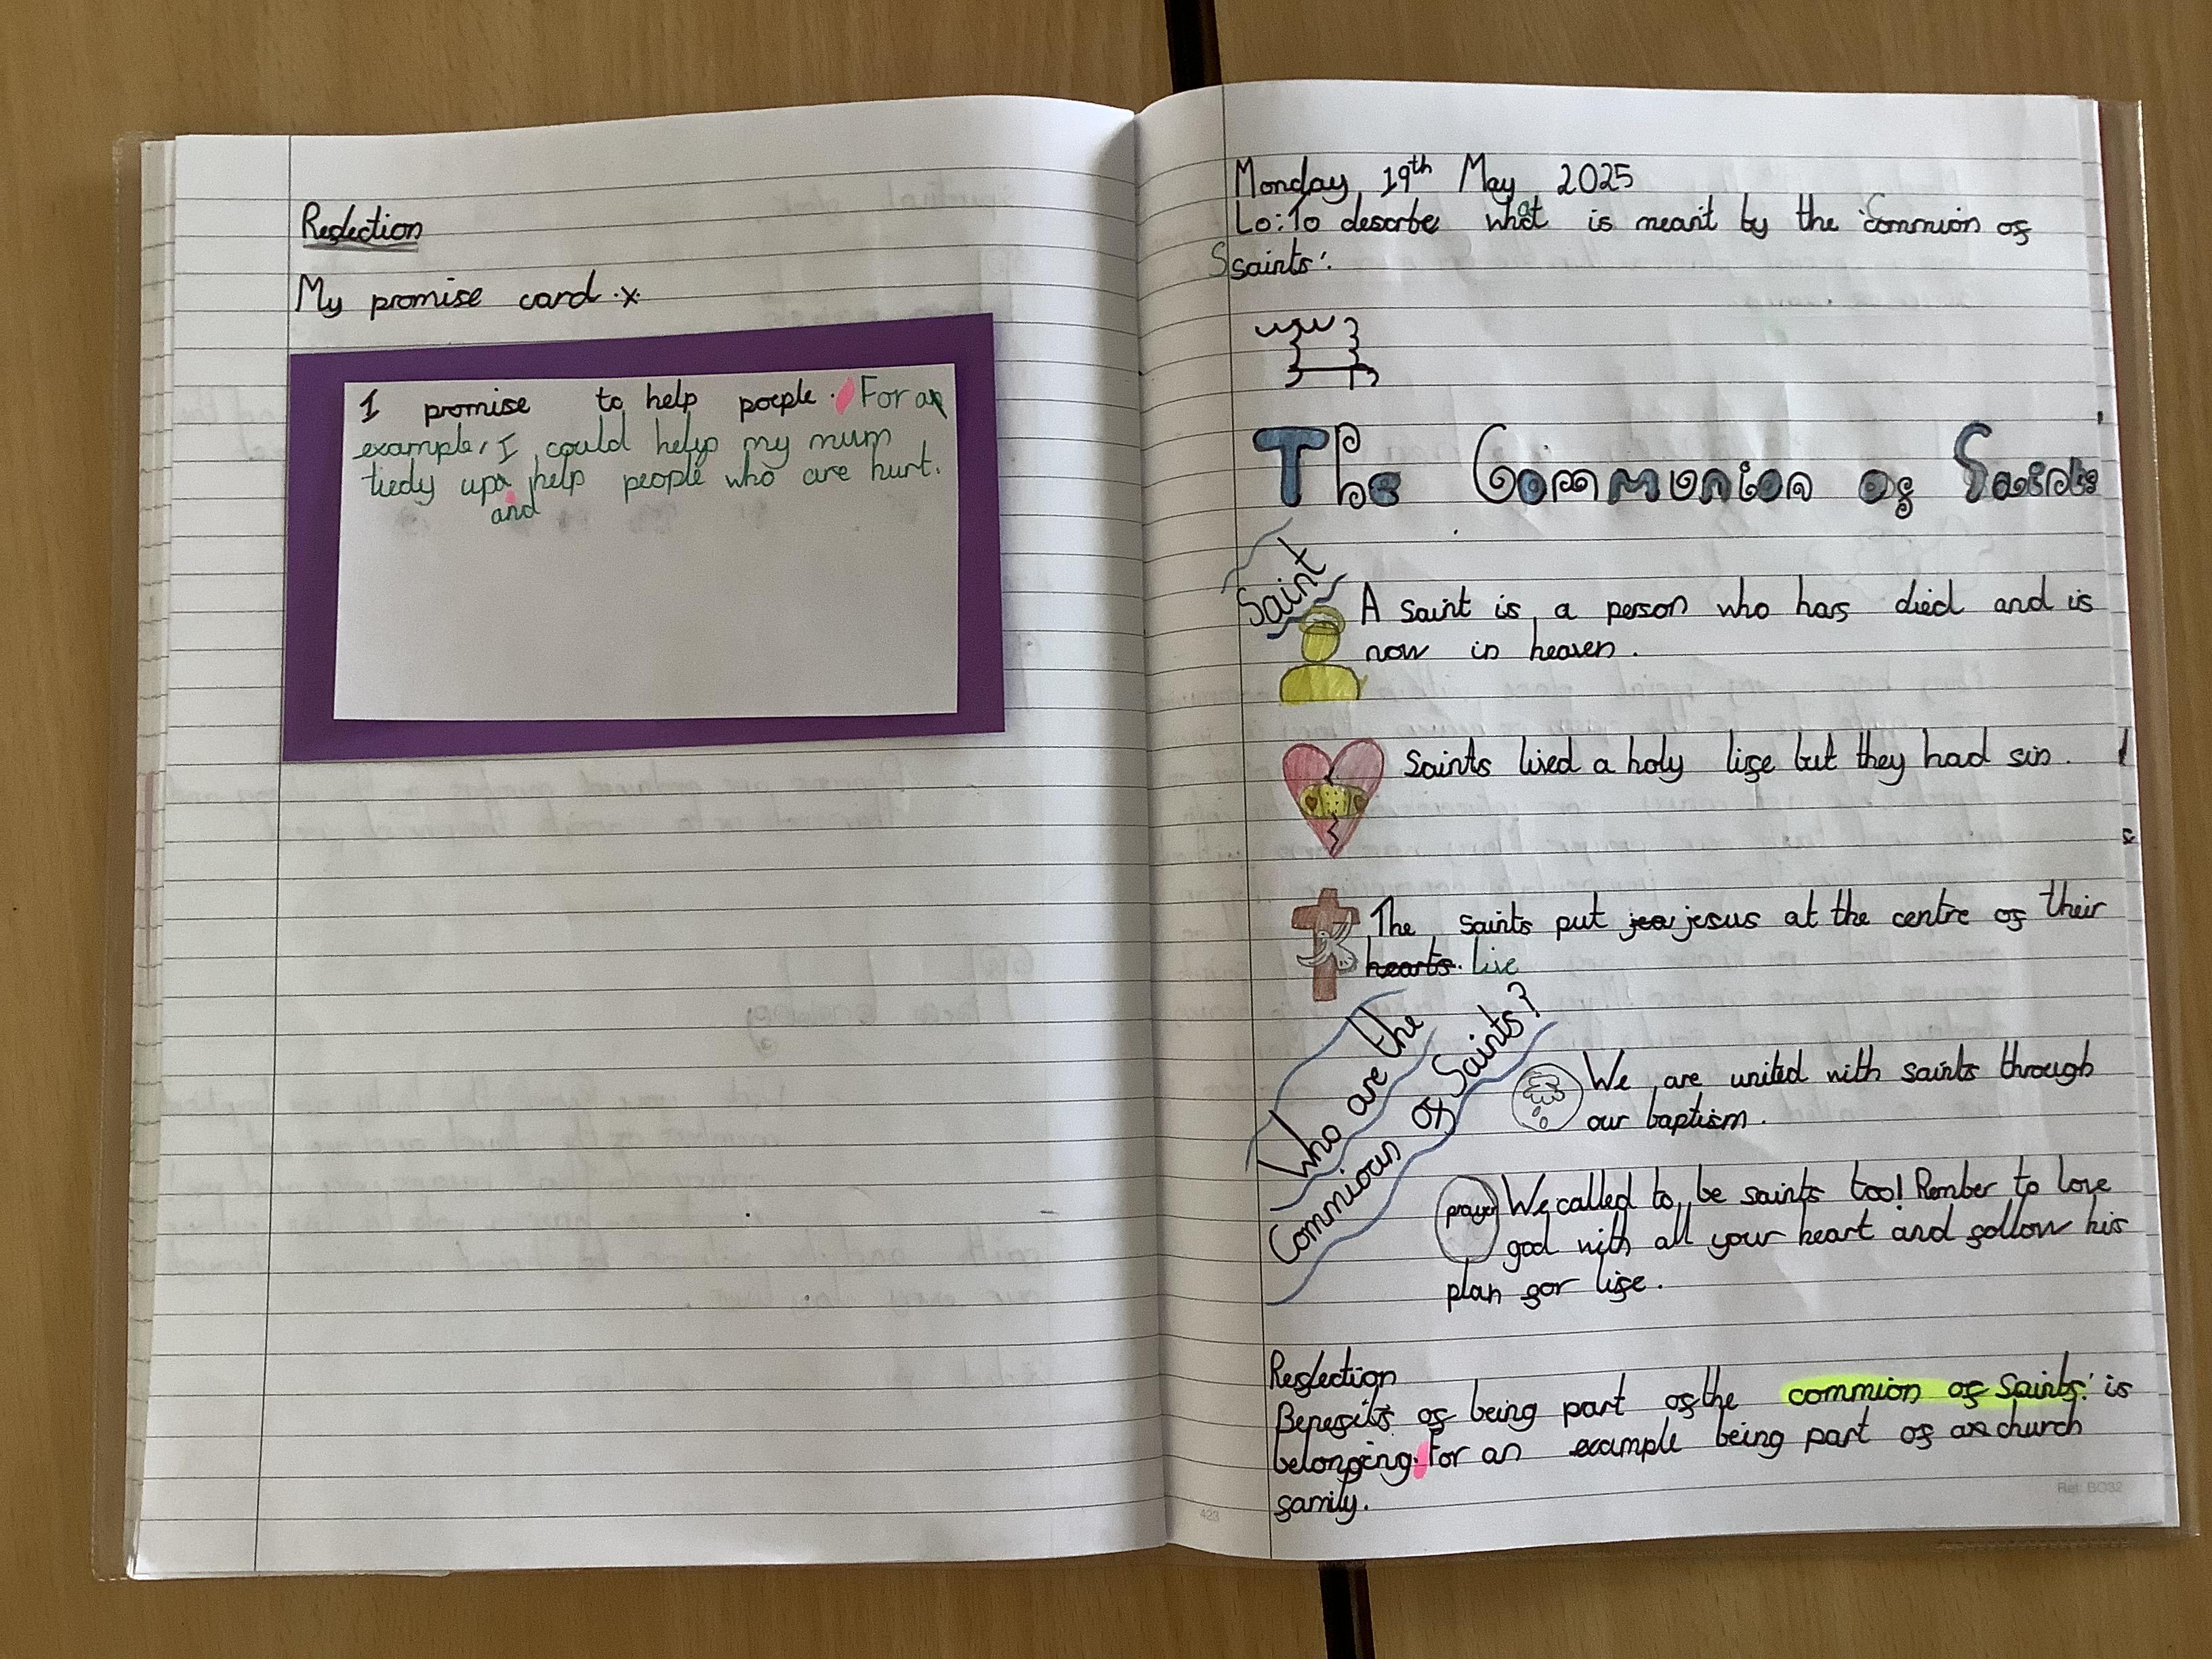 Reflection
My promise card ·x·
I promise to help poeple. For an
example, I could help my mum
tiedy up help people who are hurt.
and
Monday 19th May 2025
Lo: To descrbe what is meant by the 'Commion of
Saints'.
The Communion of Saints
Saint
A saint is a person who has died and is
now in heaven.
Saints lived a holy life but they had sin.
The saints put jesus at the centre of their
hearts. live
Who are the
Commiom of Saints?
We are united with saints through
our baptism.
prayer
We called to be saints too! Rember to love
god with all your heart and follow his
plan for life.
Reflection
Benefits of being part of the commion of Saints' is
belonging. For an example being part of a church
family.
423
Ref: BO32